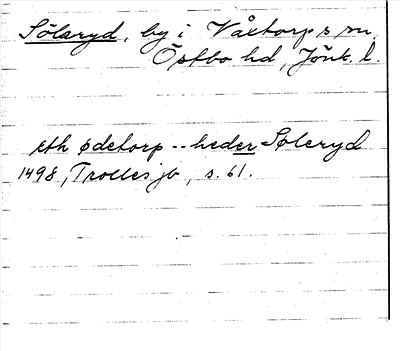 Sölaryd, by i Våxtorps sn,
Östbo hd, Jönk. l.
eth ødetorp -- heder Søleryd
1498, Trolles jb, s. 61.